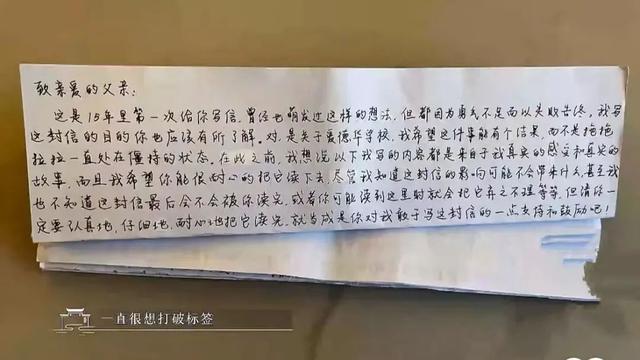 致亲爱的父亲:
这是15年里第一次给你写信,曾经也萌发过这样的想法,但都因为勇气不足而以失败告终,我写
这封信的目的你也应该有所了解。对,是关于爱德华学校,我希望这件事能有个结果,而不是拖拖
拉拉一直处在僵持的状态。在此之前,我想说以下我写的内容都是来自于我真实的感受和真实的
故事,而且我希望你能很耐心的把它读下去,尽管我知道这封信的影响可能不会带来什么,甚至我
也不知道这封信最后会不会被你读完,或者你可能读到这里时就会把它弃之不理等等,但请你一
定要认真地,仔细地,耐心地把它读完,就当成是你对我敢于写这封信的一点支持和鼓励吧!
一直很想打破标签